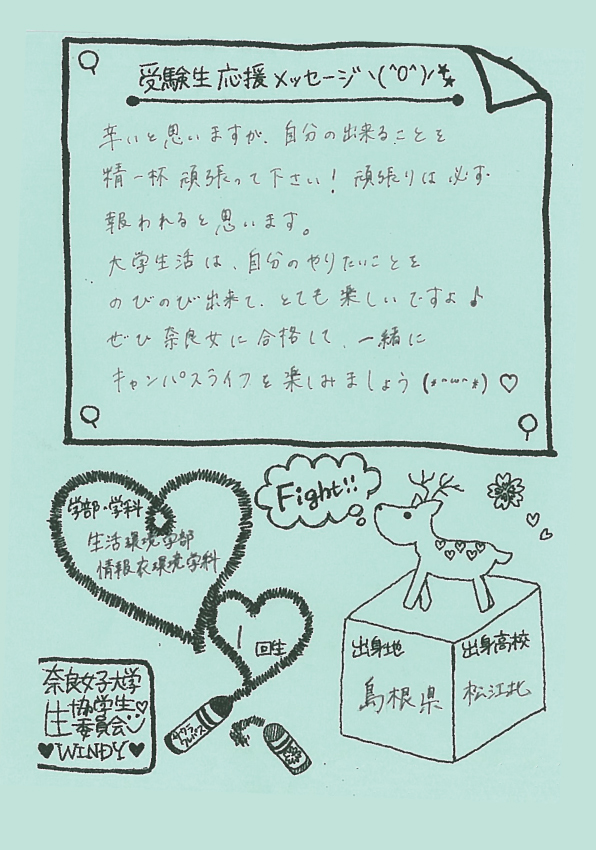 受験生応援メッセージヽ(^O^)ﾉ
辛いと思いますが、自分の出来ることを
精一杯頑張って下さい！頑張りは必ず
報われると思います。
大学生活は、自分のやりたいことを
のびのび出来て、とても楽しいですよ♪
ぜひ奈良女に合格して、一緒に
キャンパスライフを楽しみましょう(*^ω^*)♡
Fight!!
学部・学科
生活環境学部
情報衣環境学科
1回生
出身地
島根県
出身高校
松江北
奈良女子大学
生協学生
委員会
♥WINDY♥
サクラ
クレパス